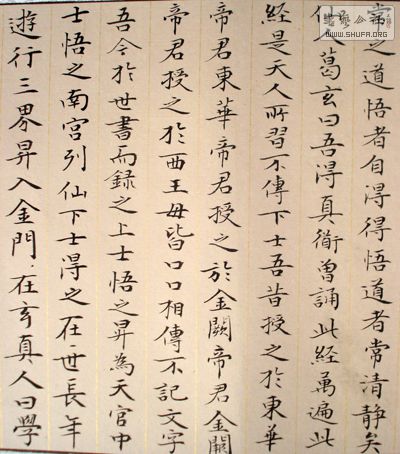 常之道悟者自得得悟道者常清靜矣
仙人葛玄曰吾得真衜曾誦此經萬遍此
經是天人所習不傳下士吾昔授之於東華
帝君東華帝君授之於金闕帝君金闕
帝君授之於西王母皆口口相傳不記文字
吾今於世書而錄之上士悟之昇為天官中
士悟之南宮列仙下士得之在世長年
遊行三界昇入金門.在玄真人曰學
WWW.SHUFA.ORG